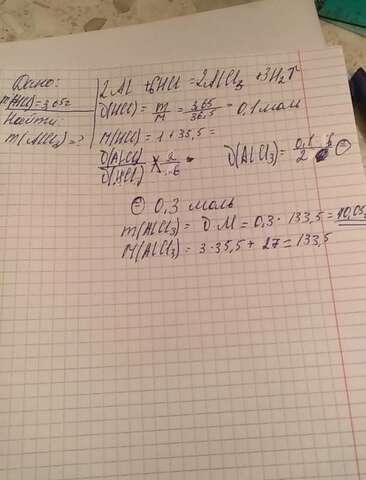 Дано:
m(HCl)=3,65г
Найти
m(AlCl₃)=?
2Al + 6HCl = 2AlCl₃ + 3H₂↑
υ(HCl) = m/M = 3,65/36,5 = 0,1 моль
M(HCl) = 1+35,5 =
υ(AlCl₃)/υ(HCl) 2/6
υ(AlCl₃) = 0,1·6/2 =
= 0,3 моль
m(AlCl₃) = υ·M = 0,3·133,5 = 40,05г
M(AlCl₃) = 3·35,5 + 27 = 133,5